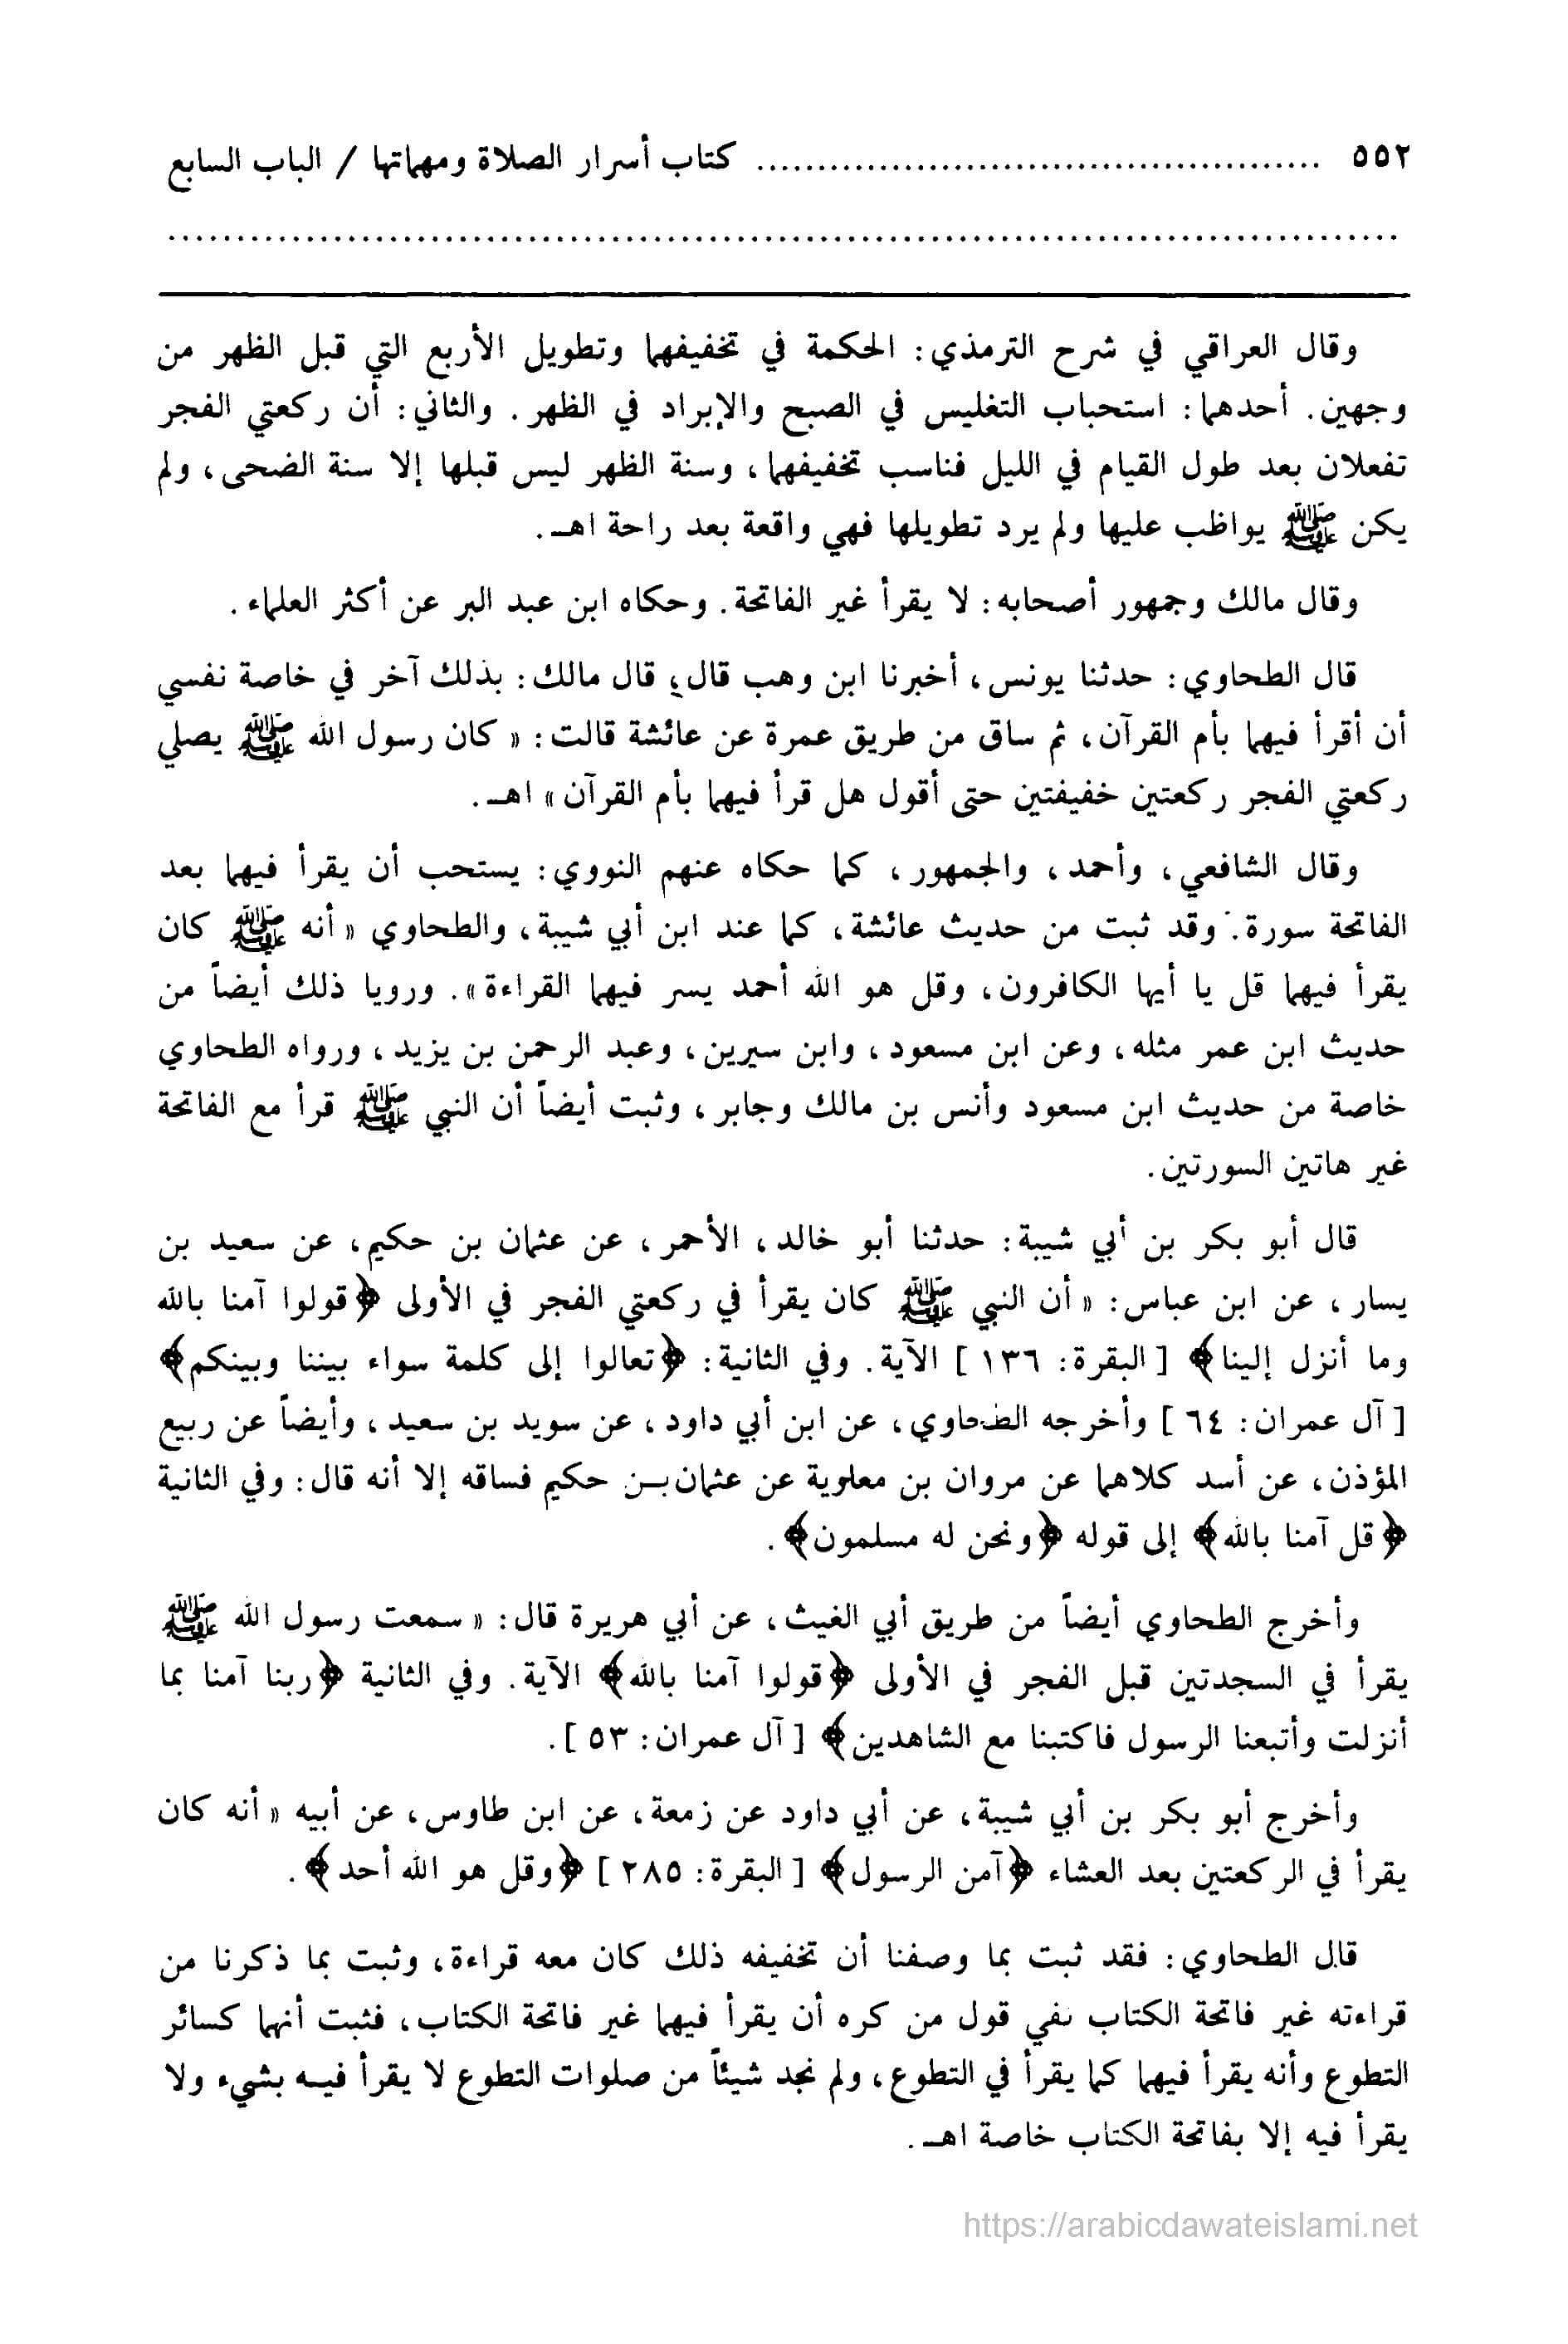 ٥٥٢ ............................................... كتاب أسرار الصلاة ومهماتها / الباب السابع
.........................................................................................
وقال العراقي في شرح الترمذي: الحكمة في تخفيفهما وتطويل الأربع التي قبل الظهر من
وجهين. أحدهما: استحباب التغليس في الصبح والإبراد في الظهر. والثاني: أن ركعتي الفجر
تفعلان بعد طول القيام في الليل فناسب تخفيفهما، وسنة الظهر ليس قبلها إلا سنة الضحى، ولم
يكن ﷺ يواظب عليها ولم يرد تطويلها فهي واقعة بعد راحة اهـ.
وقال مالك وجمهور أصحابه: لا يقرأ غير الفاتحة. وحكاه ابن عبد البر عن أكثر العلماء.
قال الطحاوي: حدثنا يونس، أخبرنا ابن وهب قال؛ قال مالك: بذلك آخر في خاصة نفسي
أن أقرأ فيهما بأم القرآن، ثم ساق من طريق عمرة عن عائشة قالت: «كان رسول الله ﷺ يصلي
ركعتي الفجر ركعتين خفيفتين حتى أقول هل قرأ فيهما بأم القرآن» اهـ.
وقال الشافعي، وأحمد، والجمهور، كما حكاه عنهم النووي: يستحب أن يقرأ فيهما بعد
الفاتحة سورة. وقد ثبت من حديث عائشة، كما عند ابن أبي شيبة، والطحاوي «أنه ﷺ كان
يقرأ فيهما قل يا أيها الكافرون، وقل هو الله أحمد يسر فيهما القراءة». ورويا ذلك أيضاً من
حديث ابن عمر مثله، وعن ابن مسعود، وابن سيرين، وعبد الرحمن بن يزيد، ورواه الطحاوي
خاصة من حديث ابن مسعود وأنس بن مالك وجابر، وثبت أيضاً أن النبي ﷺ قرأ مع الفاتحة
غير هاتين السورتين.
قال أبو بكر بن أبي شيبة: حدثنا أبو خالد، الأحمر، عن عثمان بن حكيم، عن سعيد بن
يسار، عن ابن عباس: «أن النبي ﷺ كان يقرأ في ركعتي الفجر في الأولى ﴿قولوا آمنا بالله
وما أنزل إلينا﴾ [البقرة: ١٣٦] الآية. وفي الثانية: ﴿تعالوا إلى كلمة سواء بيننا وبينكم﴾
[آل عمران: ٦٤] وأخرجه الطحاوي، عن ابن أبي داود، عن سويد بن سعيد، وأيضاً عن ربيع
المؤذن، عن أسد كلاهما عن مروان بن معاوية عن عثمان بـن حكيم فساقه إلا أنه قال: وفي الثانية
﴿قل آمنا بالله﴾ إلى قوله ﴿ونحن له مسلمون﴾.
وأخرج الطحاوي أيضاً من طريق أبي الغيث، عن أبي هريرة قال: «سمعت رسول الله ﷺ
يقرأ في السجدتين قبل الفجر في الأولى ﴿قولوا آمنا بالله﴾ الآية. وفي الثانية ﴿ربنا آمنا بما
أنزلت وأتبعنا الرسول فاكتبنا مع الشاهدين﴾ [آل عمران: ٥٣].
وأخرج أبو بكر بن أبي شيبة، عن أبي داود عن زمعة، عن ابن طاوس، عن أبيه «أنه كان
يقرأ في الركعتين بعد العشاء ﴿آمن الرسول﴾ [البقرة: ٢٨٥] ﴿وقل هو الله أحد﴾.
قال الطحاوي: فقد ثبت بما وصفنا أن تخفيفه ذلك كان معه قراءة، وثبت بما ذكرنا من
قراءته غير فاتحة الكتاب نفي قول من كره أن يقرأ فيهما غير فاتحة الكتاب، فثبت أنهما كسائر
التطوع وأنه يقرأ فيهما كما يقرأ في التطوع، ولم نجد شيئاً من صلوات التطوع لا يقرأ فيـه بشيء ولا
يقرأ فيه إلا بفاتحة الكتاب خاصة اهـ.
https://arabicdawateislami.net